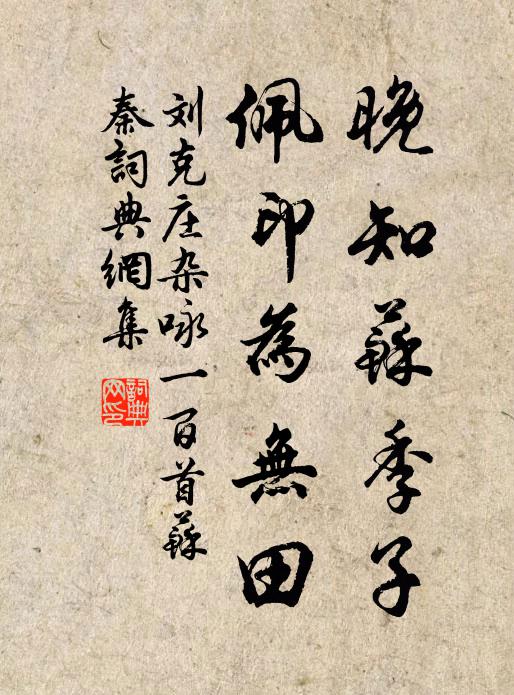 晚知蘇季子
佩印為無田
刘克庄杂咏一百首蘇
秦詞典網集
詞典
网印